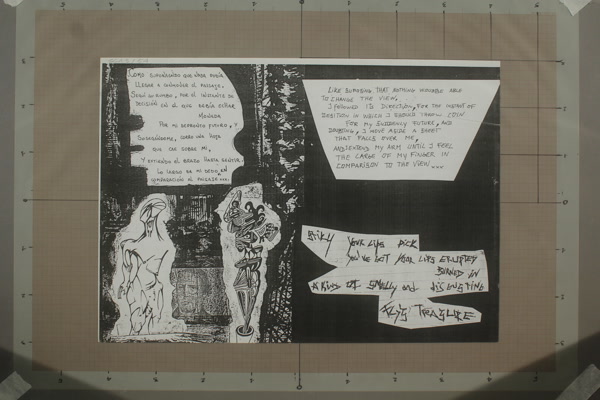 COMO SUPONIENDO QUE NADA PODÍA
LLEGAR A INCOMODAR EL PAISAJE,
SEGUÍ SU RUMBO, POR EL INSTANTE DE
DECISIÓN EN EL QUE DEBÍA ECHAR
MONEDA
POR MI REPENTINO FUTURO, Y
SUBCEDIÉNDOME, CORRO UNA HOJA
QUE CAE SOBRE MÍ,
Y EXTIENDO EL BRAZO HASTA SENTIR
LO LARGO DE MI DEDO EN
COMPARACIÓN AL PAISAJE...
LIKE SUPOSING THAT NOTHING ABLE
TO CHANGE THE VIEW,
I FOLLOWED IT'S DIRECTION, FOR THE INSTANT OF
DESITION IN WHICH I SHOULD THROW COIN
FOR MY SUDDENLY FUTURE, AND
I MOVE ASIDE A SHEET
THAT FALLS OVER ME,
AND EXTEND MY ARM UNTIL I FEEL
THE LARGE OF MY FINGER IN
COMPARISON TO THE VIEW...
YOUR LIPS DICK
YOU'VE GOT YOUR LIPS ERUPTED
BURNED IN
A KIND OF SMELLY and DISGUSTING
FLY'S TREASURE